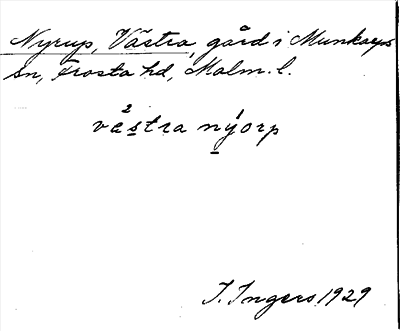 Nyrup, Västra, gård i Munkarps
sn, Frosta hd, Malm. l.
vä̀stra nýorp
I. Ingers 1929